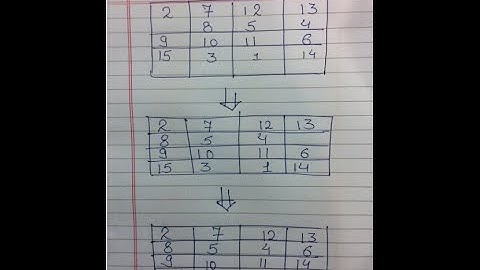 2 7 12 13
8 5 4
9 10 11 6
15 3 1 14
2 7 12 13
8 5 4
9 10 11 6
15 3 1 14
2 7 12 13
8 5 4 6
9 10 11 14